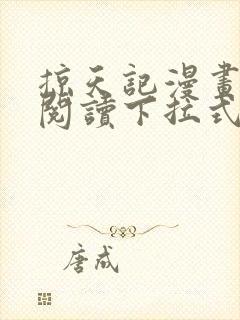 掠天記漫畫
閱讀下拉式
唐成